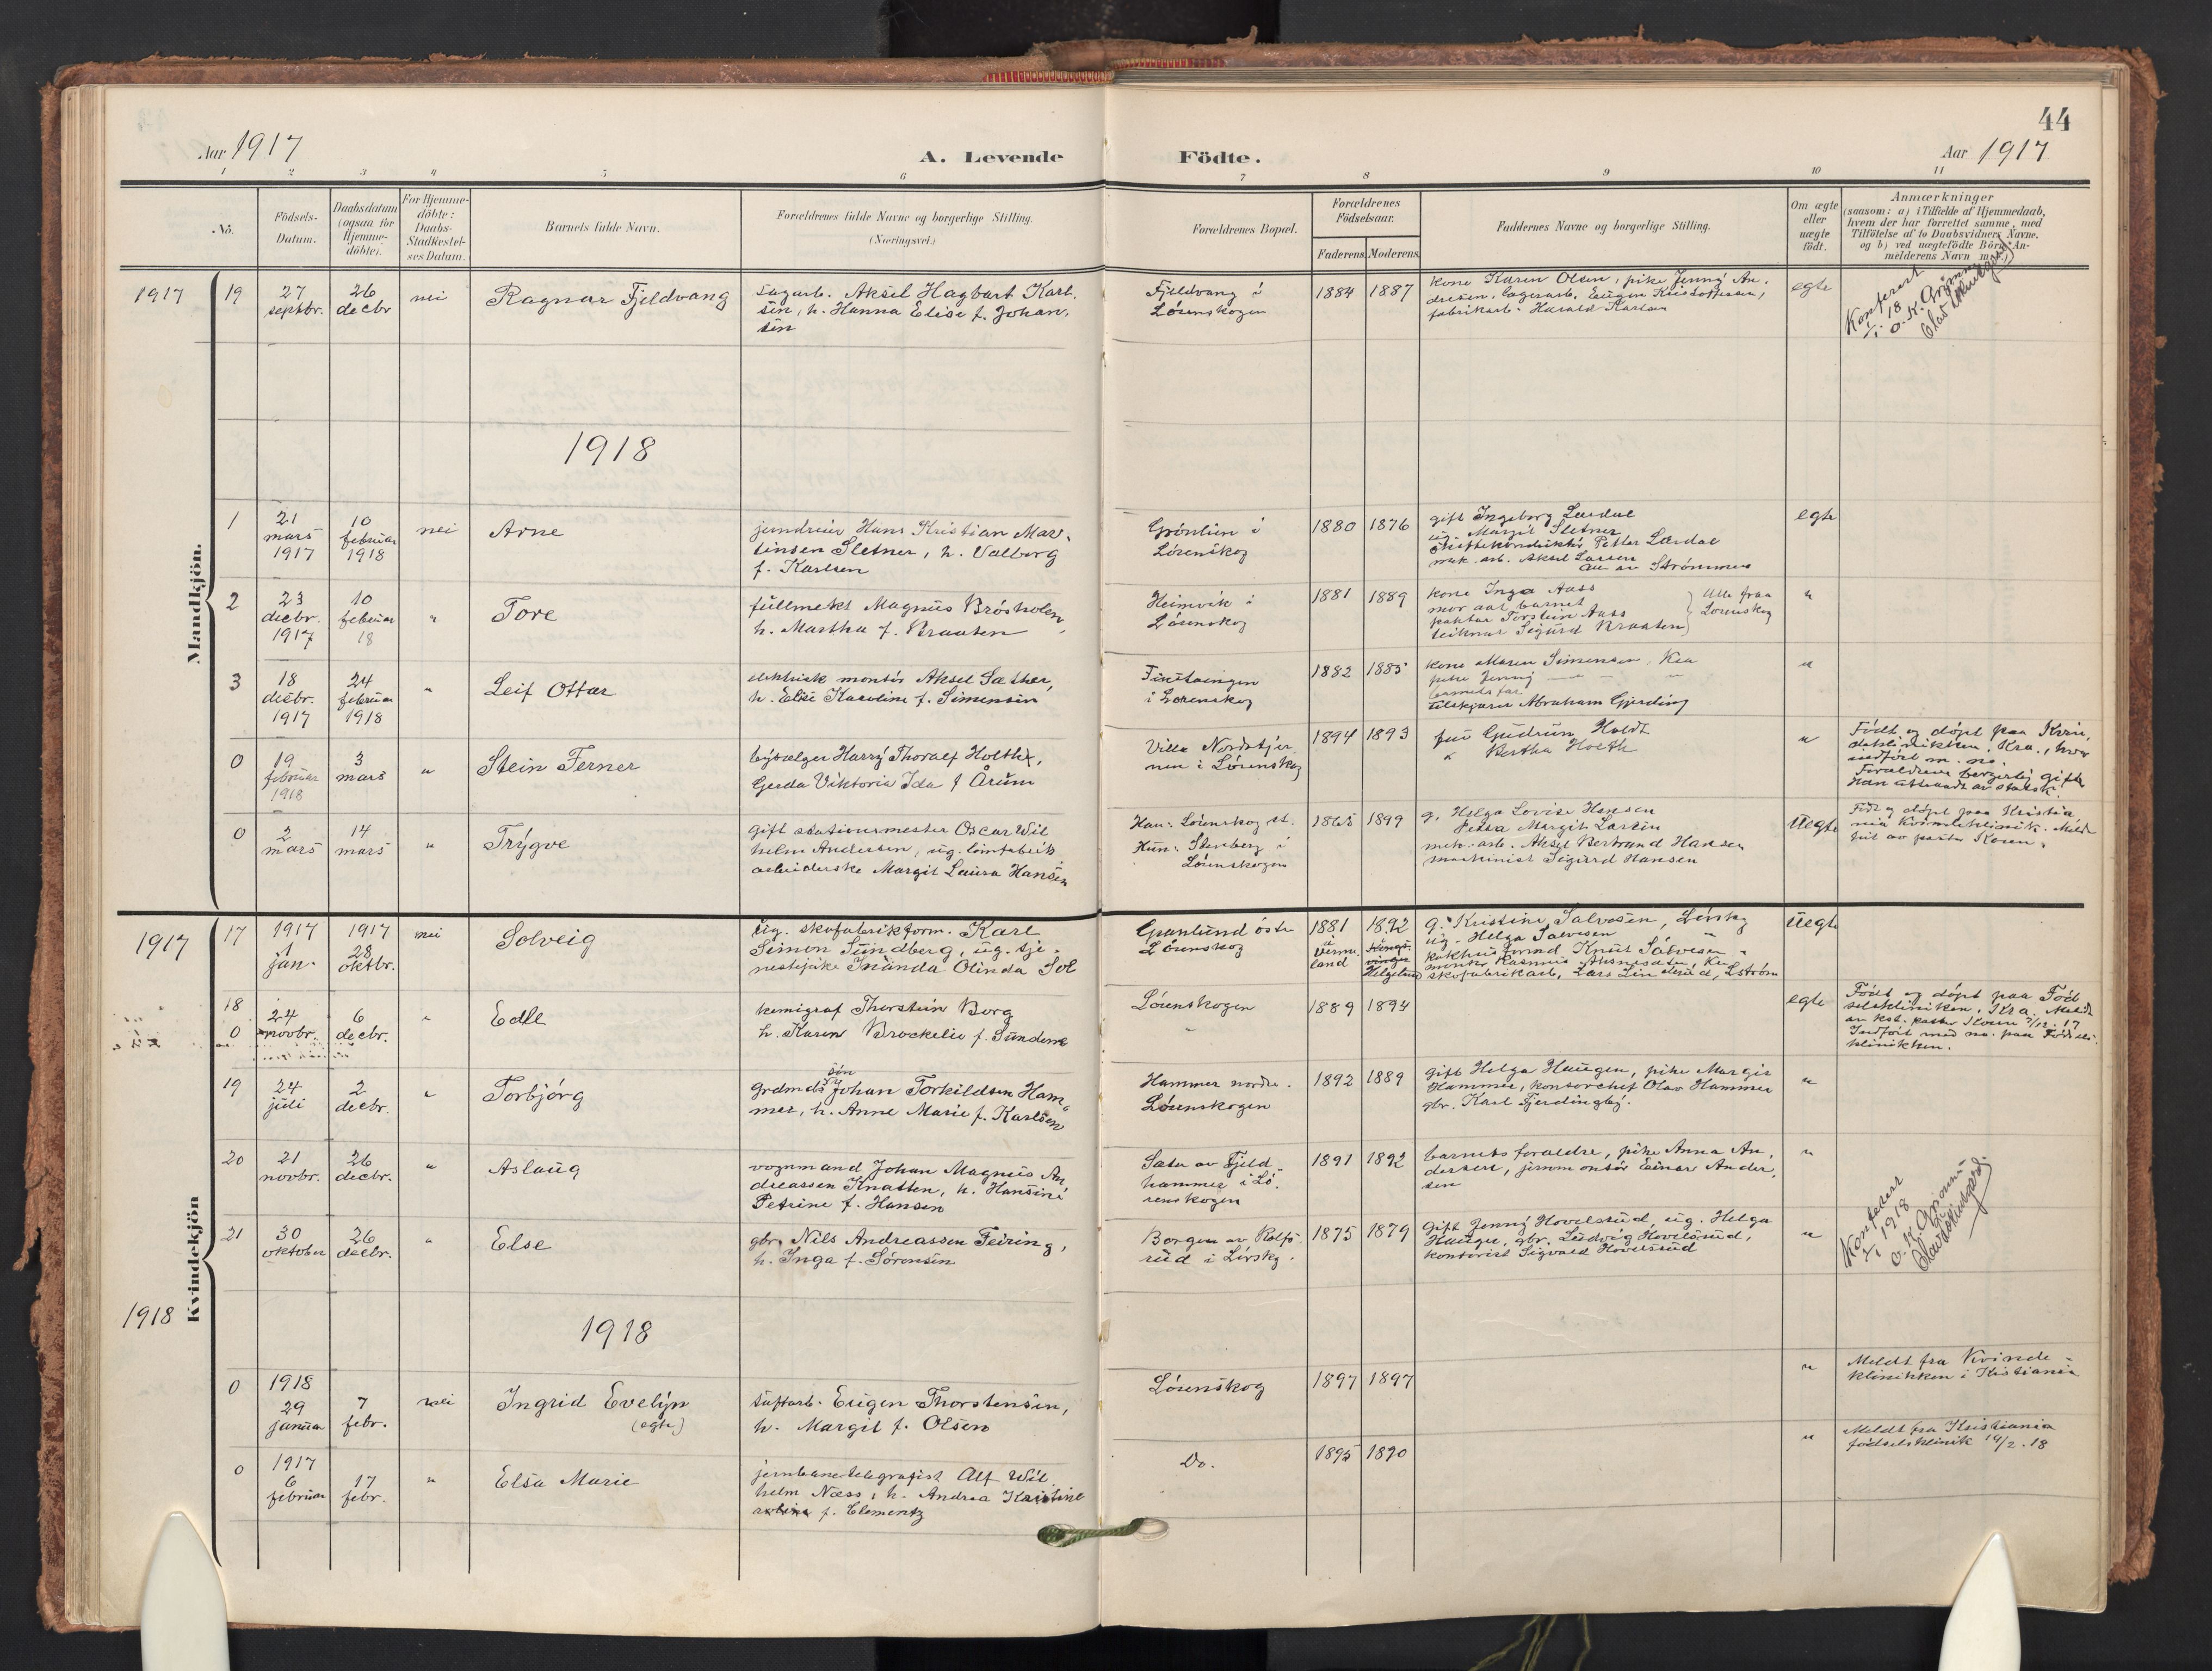 44
Aar 1917
A. Levende
Födte.
Aar 1917
1 2 3 4 5 6 7 8 9 10 11
No.
Födsels-
Datum.
Daabsdatum
(ogsaa for
Hjemme-
döbte).
For Hjemme-
döbte:
Daabs-
Stadfæstel-
ses Datum.
Barnets fulde Navn.
Forældrenes fulde Navne og borgerlige Stilling.
(Næringsvei.)
Forældrenes Bopæl.
Forældrenes
Födselsaar.
Faderens. Moderens.
Faddernes Navne og borgerlige Stilling.
Om ægte
eller
uægte
födt.
Anmærkninger
(saasom: a) i Tilfælde af Hjemmedaab,
hvem der har forrettet samme, med
Tilföielse af to Daabsvidners Navne.
og b) ved uægtefödte Börn An-
melderens Navn m.
Mandkjön.
1917
19
27
septbr.
26
decbr
nei
Ragnar Fjeldvang
sagarb. Aksel Hagbart Karl-
sen, h. Hanna Elise f. Johan-
sen
Fjeldvang i
Lörenskogen
1884
1887
kone Karen Olsen, pike Jenny An-
dresen, lagerarb. Eugen Kristoffersen,
fabrikarb. Harald Karlsen
egte
Konferert
1918
1
21
mars
1917
10
februar
1918
nei
Arne
jerndreier Hans Kristian Mar-
tinsen Sletner, h. Valborg
f. Karlsen
Grönlien i
Lörenskog
1880
1876
gift Ingeborg Lærdal
ug. Margit Sletner
Petter Lærdal
mek. arb. Aksel Larsen
Alle av Strömmen
egte
2
23
decbr.
1917
10
februar
18
"
Tore
fullmekt Magnus Brösholen,
h. Martha f. Braaten
Heimvik i
Lörenskog
1881
1889
kone Inga Aass
mor aat barnet
Torstein Aass
teiknar Sigurd Braaten
Alle fraa
Lörenskog
"
3
18
decbr.
1917
24
februar
1918
"
Leif Ottar
elektrisk montör Aksel Sæther,
h. Elise Karoline f. Simensen
i Lörenskog
1882
1885
kone Maren Simensen, Kra
pike Jenny — "
barnets far
Abraham Gjerding
"
0
19
februar
1918
3
mars
"
Stein Ferner
Harry Thoralf Holthe,
Gerda Viktoria Ida f Årum
Villa Nordstjer-
nen i Lörenskog
1894
1893
fru Gudrun Holdt
" Bertha Holth
"
Födt og döpt paa Kvin-
deklinikken, Kra., hvor
indfört m. no.
Forældrene borgerlig gift
Han uttraadt av statsk.
0
2
mars
14
mars
"
Trygve
gift stationsmester Oscar Wil
helm Andersen, ug. limfabrik
arbeiderske Margit Laura Hansen
Han: Lörenskog st.
Hun: Stenberg i
Lörenskogen
1865
1899
g. Helga Lovise Hansen
Petra Margit Larsen
mek. arb. Aksel Bertrand Hansen
maskinist Sigurd Hansen
Uegte
Födt og döpt paa Kristia-
nia Kvindeklinik. Meldt
hit av pastor Koren.
Kvindekjön
1917
17
1917
1
jan.
1917
28
oktbr.
nei
Solveig
ug. skofabrikform. Karl
Simon Sundberg, ug. tje-
nestepike Inanda Olinda Sol
Granlund östr
Lörenskog
1881
i
Verm-
land
1892
Helgeland
g. Kristine Salvesen, Lörskg
ug. Helga Salvesen "
Knut Salvesen "
skofabrikarb. Lars Lindsrud, Lström
Uegte
18
0
24
novbr.
6
decbr.
"
Edle
kemigraf Thorstein Borg
h. Karen Brockelie f. Sunderne
Lörenskogen
"
1889
1894
egte
Födt og döpt paa Föd
selsklinikken, Kra. Meldt
av kst. pastor Koren 7/12.17
Indfört med no. paa Födsels-
klinikken.
19
24
juli
2
decbr.
"
Torbjörg
sön
grdmds Johan Torkildsen Ham-
mer, h. Anne Marie f. Karlsen
Hammer nordre.
Lörenskogen
1892
1889
gift Helga Haugen, pike Margit
Hammer, kontorchef Olav Hammer
gbr. Karl Fjerdingby.
"
20
21
novbr.
26
decbr.
"
Aslaug
vognmand Johan Magnus An-
dreassen Knatten, h. Hansine
Petrine f. Hansen
Sæter av Fjeld
hammer i Lö-
renskogen
1891
1892
barnets forældre, pike Anna An-
dersen, jernmontör Einar Ander-
sen
"
21
30
oktober
26
decbr.
"
Else
gbr. Nils Andreassen Feiring,
h. Inga f. Sörensen
Borgen av Rolfs-
rud i Lörskg.
1875
1879
Gift Jenny Hovelsrud, ug. Helga
Haugen, gbr. Ludvig Hovelsrud,
kontorist Sigvald Hovelsrud
"
Konferert
1918
1918
1918
0
1918
29
januar
7
febr.
nei
Ingrid Evelyn
(egte)
tuftarb. Eugen Thorstensen,
h. Margit f. Olsen
Lörenskog
1897
1897
"
Meldt fra Kvinde-
klinikken i Kristiania
0
1917
6
februar
17
febr.
"
Elsa Marie
jernbanetelegrafist Alf Wil
helm Næss, h. Andrea Kristine
f. Clementz
Do.
1895
1890
"
Meldt fra Kristiania
födselsklinik 19/2.18